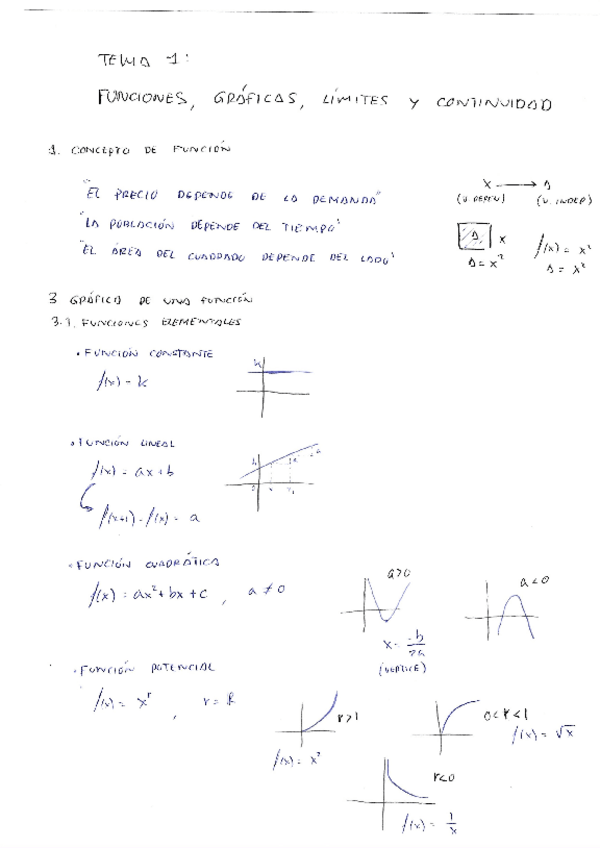 TEMA 1:
FUNCIONES, GRÁFICAS, LÍMITES Y CONTINUIDAD
1. CONCEPTO DE FUNCIÓN
"EL PRECIO DEPENDE DE LA DEMANDA"
"LA POBLACIÓN DEPENDE DEL TIEMPO"
"EL ÁREA DEL CUADRADO DEPENDE DEL LADO"
X → A
(V. DEPEN) (V. INDEP)
A X
A = x²
f(x) = x²
A = x²
3 GRÁFICA DE UNA FUNCIÓN
3.1. FUNCIONES ELEMENTALES
• FUNCIÓN CONSTANTE
f(x) = k
k
• FUNCIÓN LINEAL
f(x) = ax + b
f(x+1) - f(x) = a
b
0
• FUNCIÓN CUADRÁTICA
f(x) = ax² + bx + c , a ≠ 0
a>0
x = -b/2a
(VÉRTICE)
a<0
• FUNCIÓN POTENCIAL
f(x) = x^r , r = R
r>1
f(x) = x²
0<r<1
f(x) = √x
r<0
f(x) = 1/x